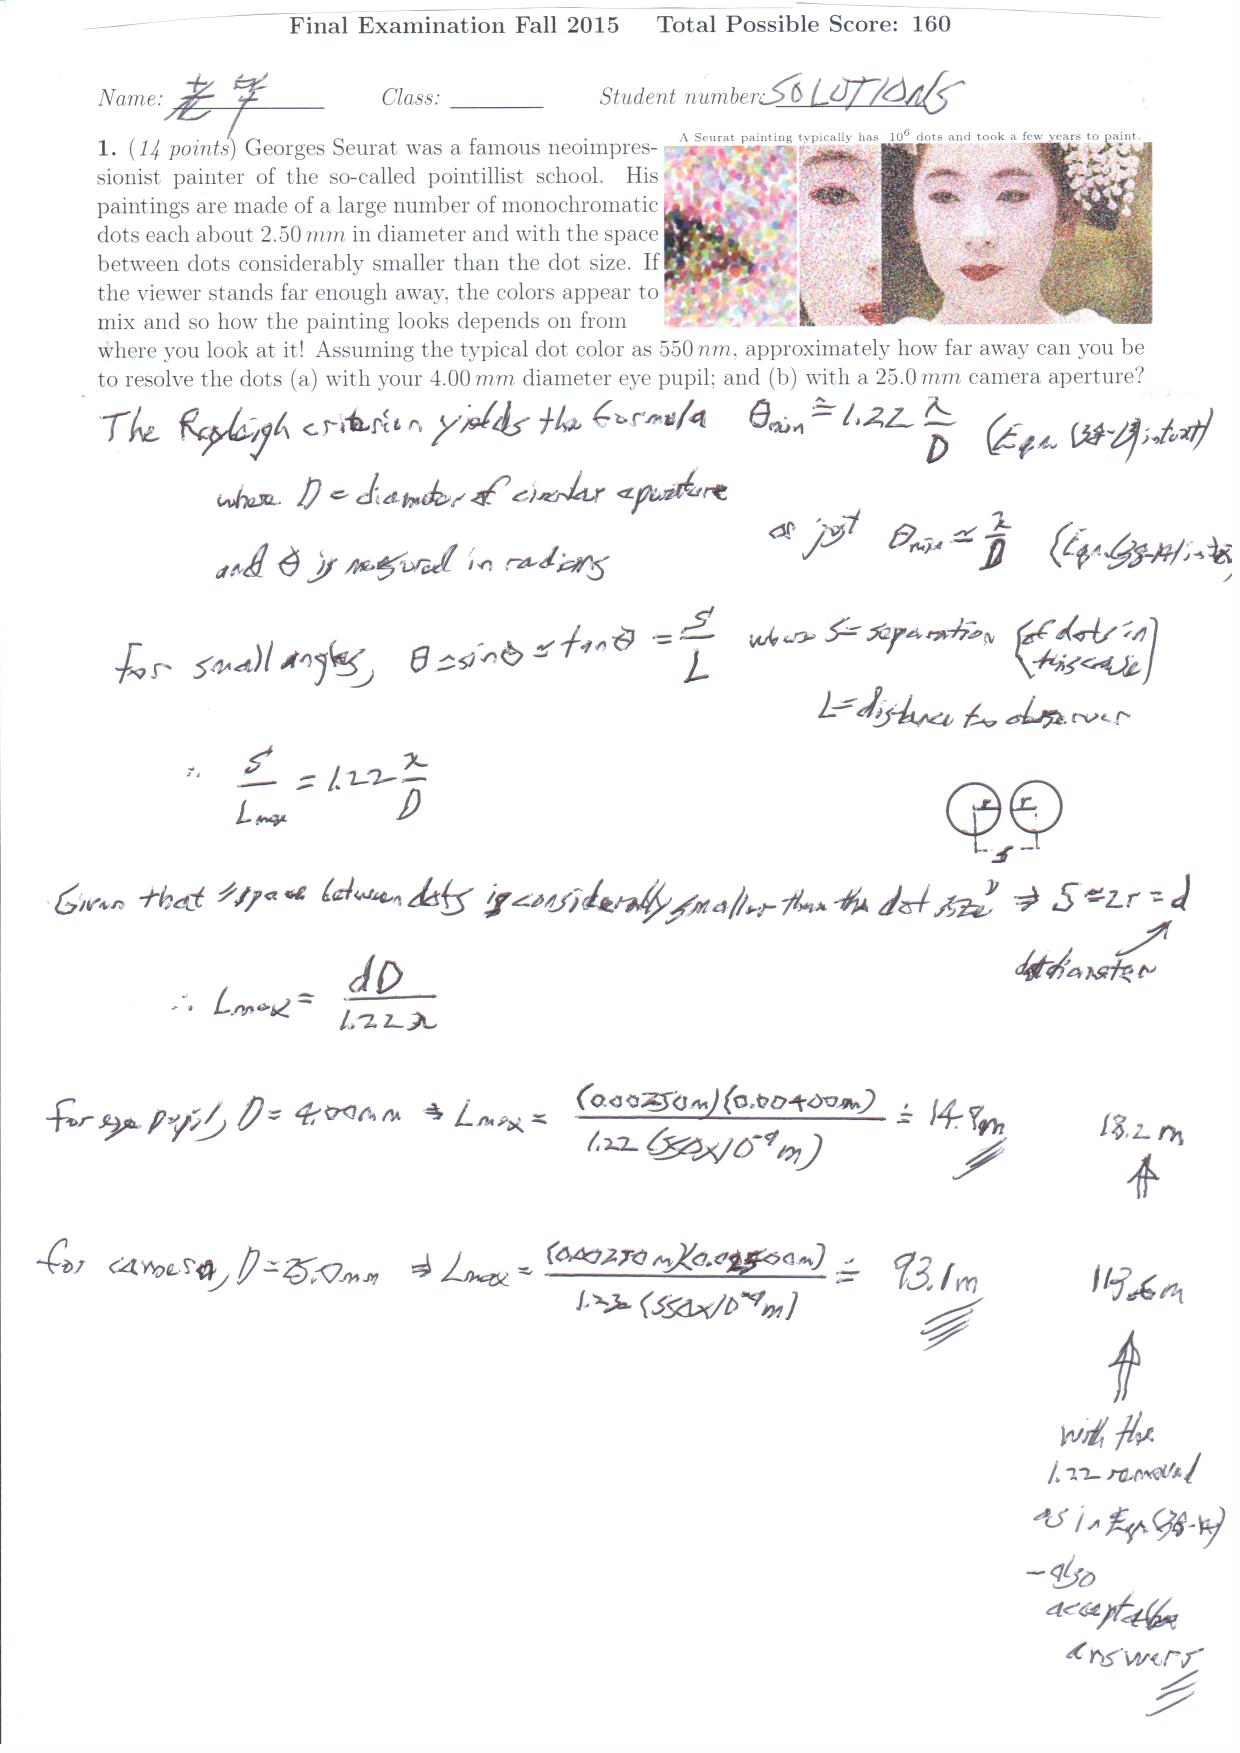 Final Examination Fall 2015 Total Possible Score: 160
Name: 老羊 Class: Student number: SOLUTIONS
A Seurat painting typically has 10⁶ dots and took a few years to paint.
1. (14 points) Georges Seurat was a famous neoimpres-
sionist painter of the so-called pointillist school. His
paintings are made of a large number of monochromatic
dots each about 2.50 mm in diameter and with the space
between dots considerably smaller than the dot size. If
the viewer stands far enough away, the colors appear to
mix and so how the painting looks depends on from
where you look at it! Assuming the typical dot color as 550 nm, approximately how far away can you be
to resolve the dots (a) with your 4.00 mm diameter eye pupil; and (b) with a 25.0 mm camera aperture?
The Rayleigh criterion yields the formula θmin ≅ 1.22 λ/D (Eqn. in text)
where D = diameter of circular aperture
or just θmin ≃ λ/D (Eqn. (38-14) in text
and θ is measured in radians
For small angles, θ ≃ sinθ ≃ tanθ = S/L where S = separation (of dots in this case)
L = distance to observer
∴ S/Lmax = 1.22 λ/D
r r
s
Given that "space between dots is considerably smaller than the dot size" ⇒ S ≃ 2r = d
dot diameter
∴ Lmax = dD/1.22λ
For eye pupil, D = 4.00mm ⇒ Lmax = (0.00250m)(0.00400m)/1.22(550x10⁻⁹m) ≐ 14.9m 18.2 m
For camera, D = 25.0mm ⇒ Lmax = (0.00250m)(0.02500m)/1.22(550x10⁻⁹m) ≐ 93.1m 113.6m
with the
1.22 removed
as in Eqn. (38-14)
- also
acceptable
answers